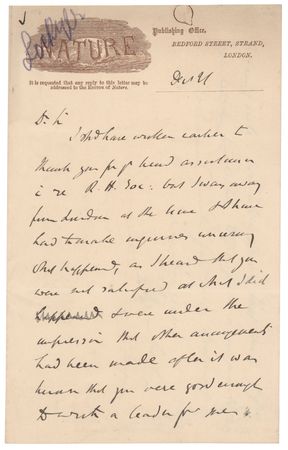 Lockyer
NATURE
Publishing Office,
BEDFORD STREET, STRAND,
LONDON.
It is requested that any reply to this letter may be
addressed to the EDITOR of Nature.
Dr Sir
I shd have written earlier to
thank you for yr kind assistance
i re R. H. Soc. but I was away
from London at the time & have
had to make inquiries concerning
what happened, as I heard that you
were not satisfied at what I did
happened & were under the
impression that other arrangements
had been made after it was
known that you were good enough
to write a leader for me